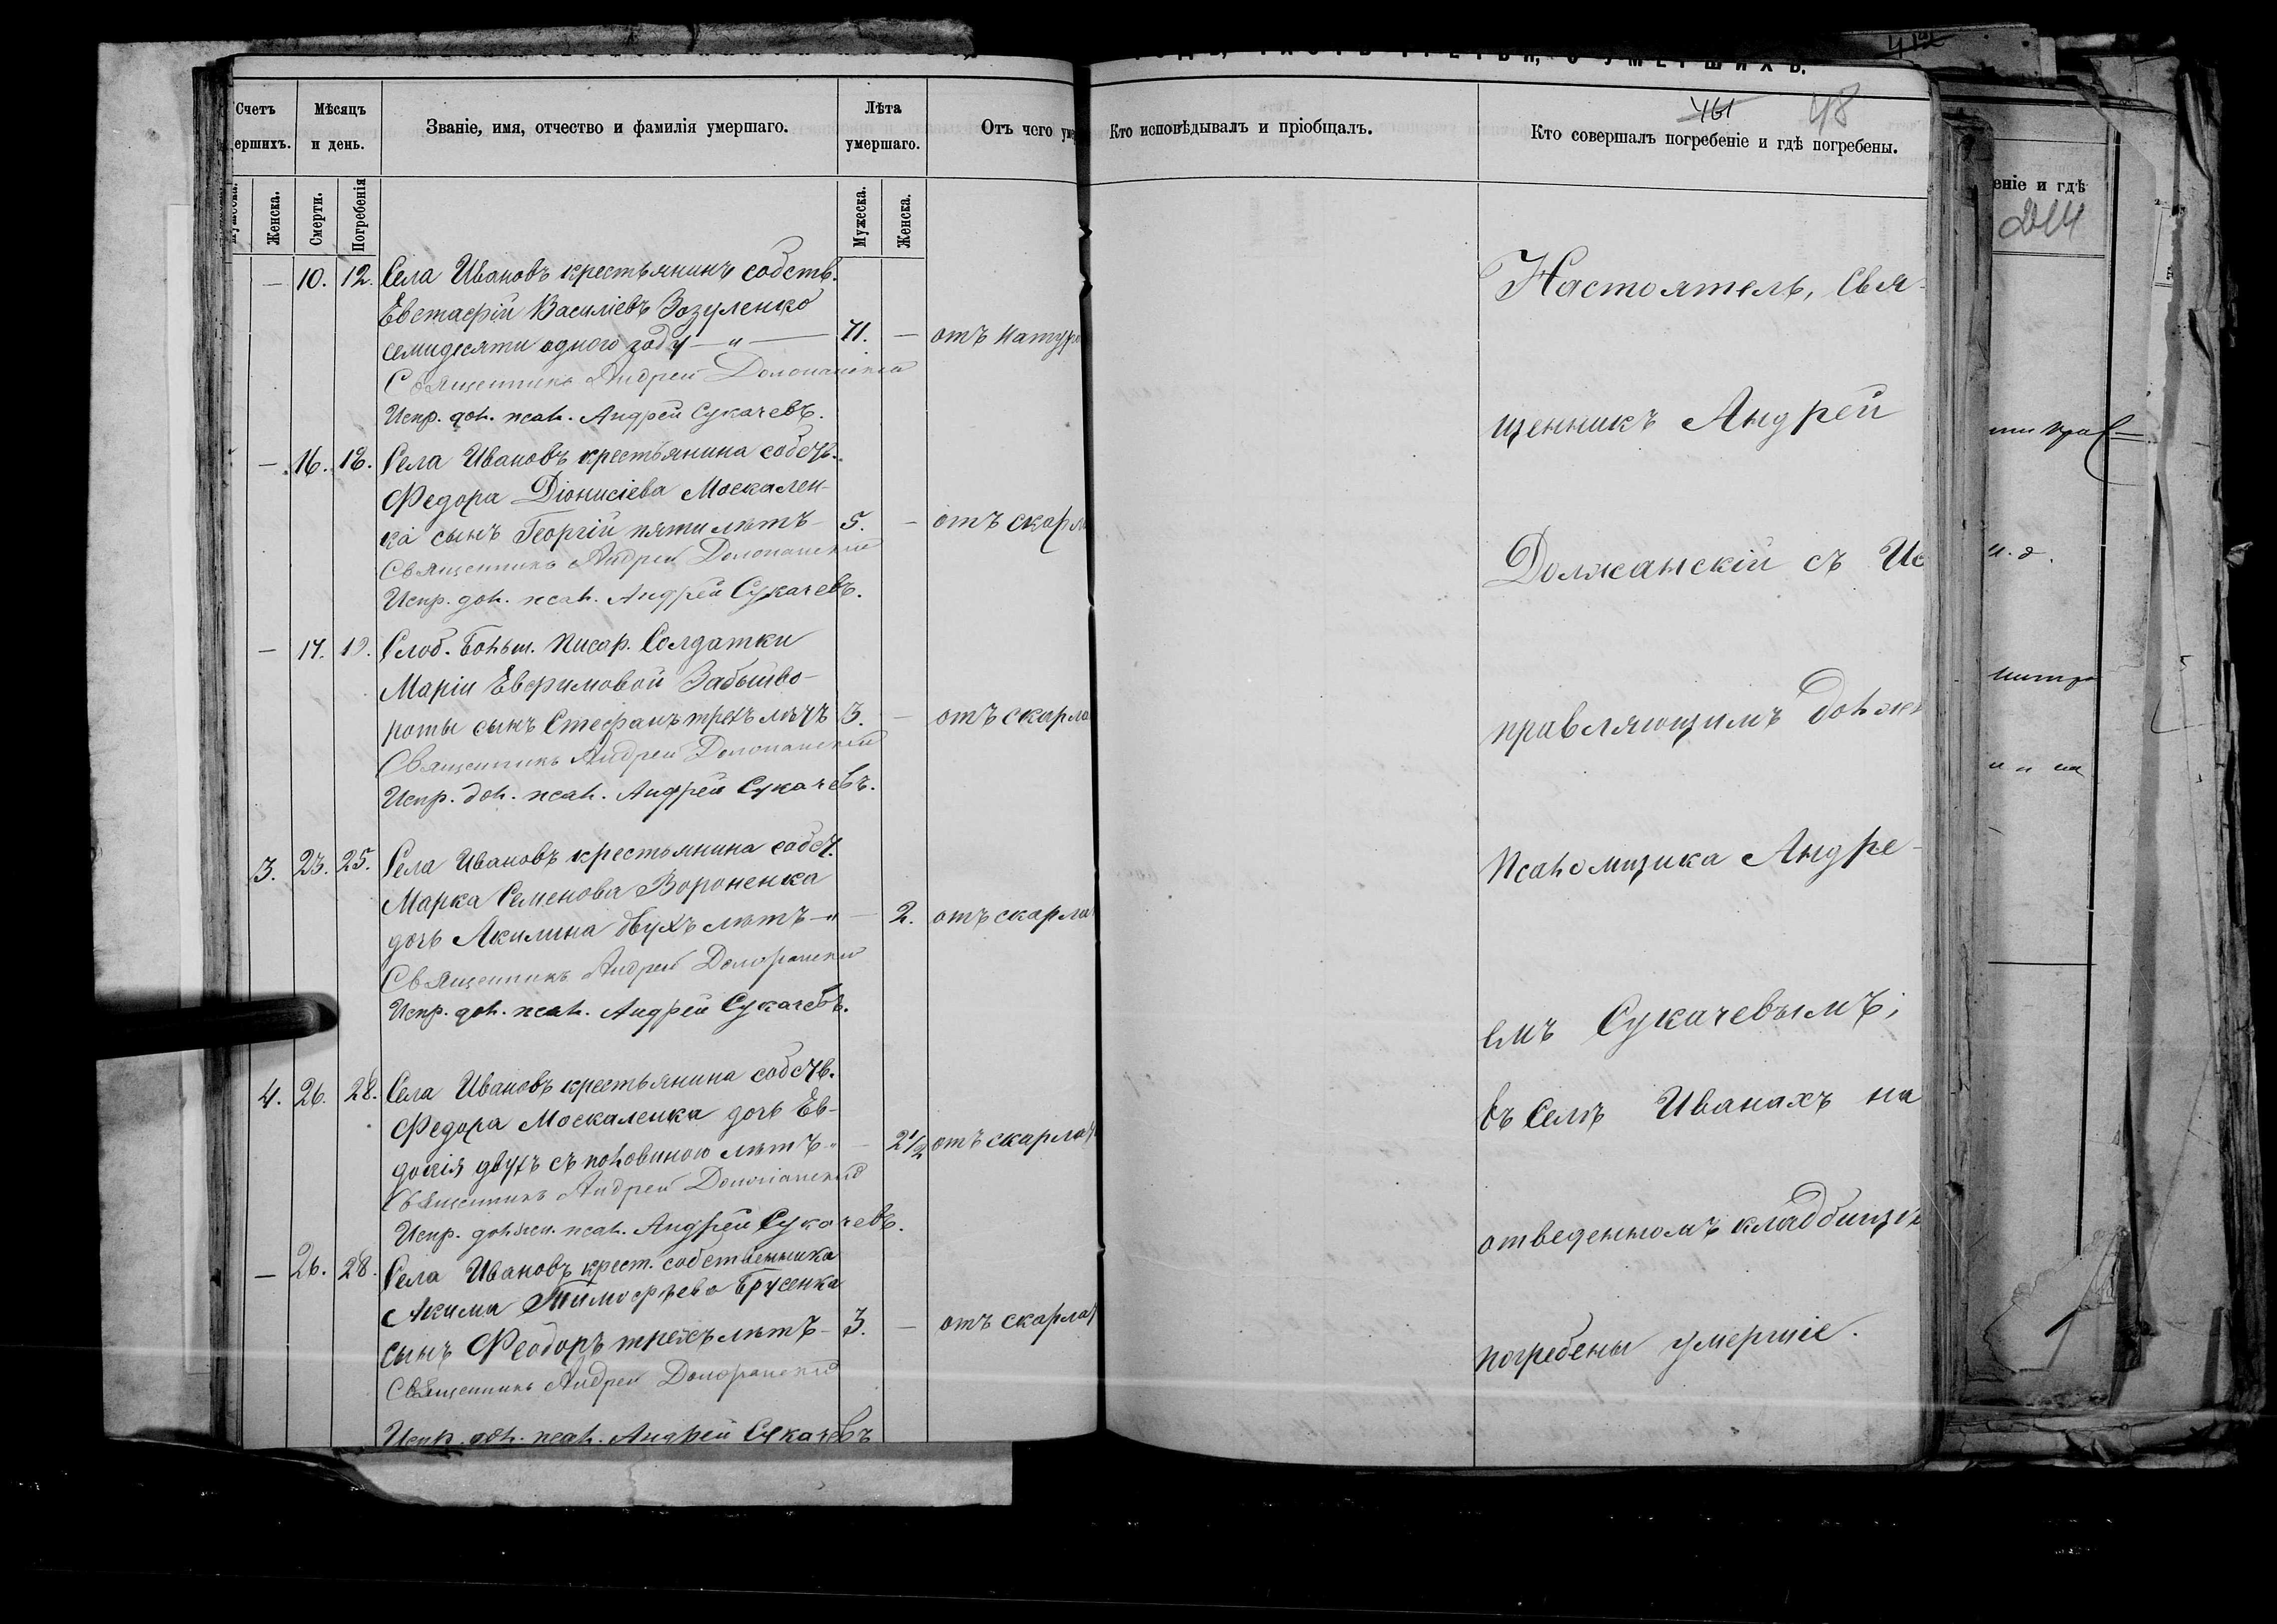 Счетъ
ершихъ.
Мѣсяцъ
и день.
Званіе, имя, отчество и фамилія умершаго.
Лѣта
умершаго.
Отъ чего уме
Женска.
Смерти.
Погребенія
Мужеска.
Женска.
— 10. 12. Села Ивановъ крестьянинъ собств.
Евстафій Василіевъ Зозуленко
семидесяти одного году —„— 71. — отъ натур
Священникъ Андрей Должанскій
Испр. дол. псал. Андрей Сукачевъ.
— 16. 18. Села Ивановъ крестьянина собств.
Федора Діонисіева Москален-
ка сынъ Георгій пяти лѣтъ- 5. — отъ скарла
Священникъ Андрей Должанскій
Испр. дол. псал. Андрей Сукачевъ.
— 17. 19. Слоб. Больш. Писар. Солдатки
Маріи Евфимовой Забышво-
роты сынъ Стефанъ трехъ лѣтъ 3. — отъ скарла
Священникъ Андрей Должанскій
Испр. дол. псал. Андрей Сукачевъ.
3. 23. 25. Села Ивановъ крестьянина собст.
Марка Семенова Вороненка
дочь Акилина двухъ лѣтъ-„ — 2. отъ скарла
Священникъ Андрей Должанскій
Испр. дол. псал. Андрей Сукачевъ.
4. 26. 28. Села Ивановъ крестьянина собств.
Федора Москаленка дочь Ев-
докія двухъ съ половиною лѣтъ-„ — 2½ отъ скарлат
Священникъ Андрей Должанскій
Испр. должн. псал. Андрей Сукачевъ.
— 26. 28. Села Ивановъ крест. собственника
Акима Тимофѣева Брусенка
сынъ Феодоръ трехъ лѣтъ- 3. — отъ скарлат
Священникъ Андрей Должанскій
Испр. дол. псал. Андрей Сукачевъ
ТРЕТЬЯ, О УМЕРШИХЪ.
461 48
Кто исповѣдывалъ и пріобщалъ.
Кто совершалъ погребеніе и гдѣ погребены.
Настоятель, Свя-
щенникъ Андрей
Должанскій съ Ис
правляющимъ долж
Псаломщика Андре-
емъ Сукачевымъ;
въ Селѣ Иванахъ на
отведенномъ кладбищѣ
погребены умершіе.
еніе и гдѣ
214